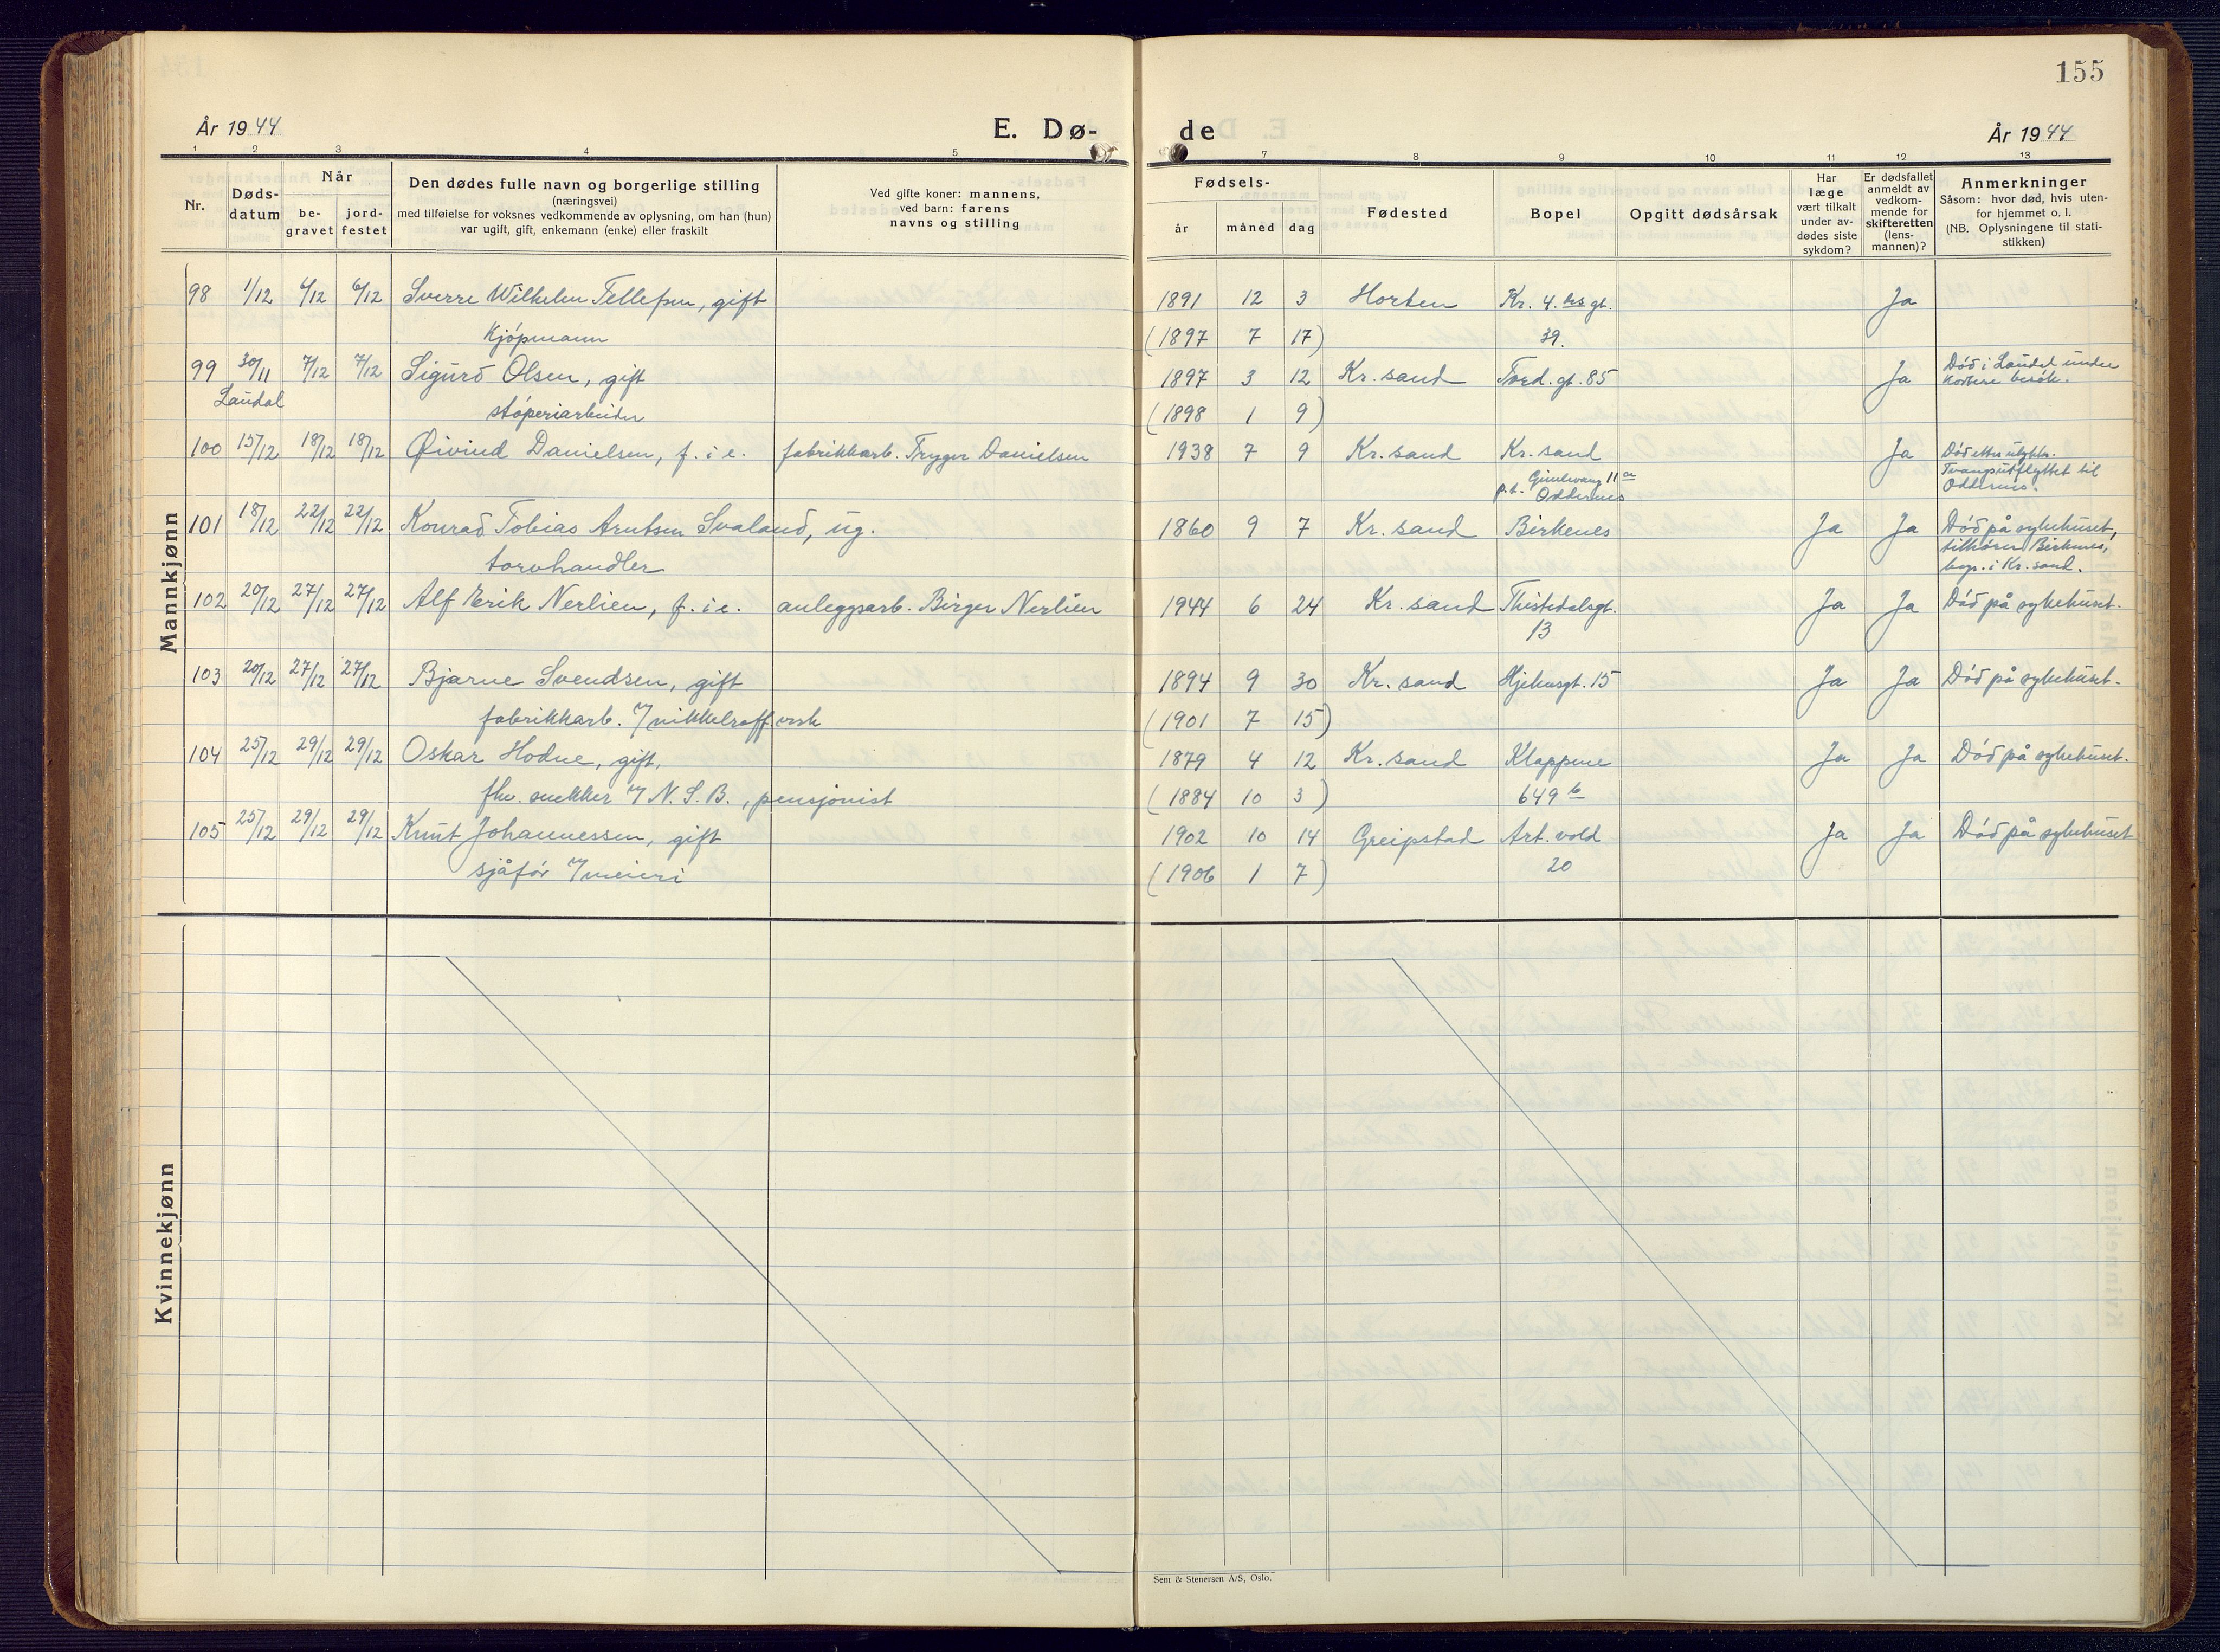 155
År 1944
E. Dø-
de
År 1944
1 2 3 4 5 7 8 9 10 11 12 13
Nr.
Døds-
datum
Når
be-
gravet
jord-
festet
Den dødes fulle navn og borgerlige stilling
(næringsvei)
med tilføielse for voksnes vedkommende av oplysning, om han (hun)
var ugift, gift, enkemann (enke) eller fraskilt
Ved gifte koner: mannens,
ved barn: farens
navns og stilling
Fødsels-
år måned dag
Fødested
Bopel
Opgitt dødsårsak
Har
læge
vært tilkalt
under av-
dødes siste
sykdom?
Er dødsfallet
anmeldt av
vedkom-
mende for
skifteretten
(lens-
mannen)?
Anmerkninger
Såsom: hvor død, hvis uten-
for hjemmet o. l.
(NB. Oplysningene til stati-
stikken)
Mannkjønn
98 1/12 6/12 6/12 Sverre Wilhelm Tellefsen, gift 1891 12 3 Horten Kr. 4. hs gt. Ja
Kjøpmann (1897 7 17) 39.
99 30/11 7/12 7/12 Sigurd Olsen, gift 1897 3 12 Kr. sand Tord. gt. 85 Ja Død i Laudal under
kortere besøk.
Laudal støperiarbeider (1898 1 9)
100 15/12 18/12 18/12 Øivind Danielsen, f. i e. fabrikkarb. Trygve Danielsen 1938 7 9 Kr. sand Kr. sand Ja Død etter ulykke.
p.t. Gimlevang 11
Oddernes
Tvangsutflyttet til
Oddernes.
101 18/12 22/12 22/12 Konrad Tobias Arntsen Svaland, ug. 1860 9 7 Kr. sand Birkenes Ja Ja Død på sykehuset,
torvhandler tilhører Birkenes,
beg. i Kr. sand.
102 20/12 27/12 27/12 Alf Erik Nerlien, f. i e. anleggsarb. Birger Nerlien 1944 6 24 Kr. sand Thistedalsgt. Ja Ja Død på sykehuset.
13
103 20/12 27/12 27/12 Bjarne Svendsen, gift 1894 9 30 Kr. sand Hjelmsgt. 15 Ja Ja Død på sykehuset.
fabrikkarb. v/nikkelraff.verk (1901 7 15)
104 25/12 29/12 29/12 Oskar Hodne, gift, 1879 4 12 Kr. sand Klappene Ja Ja Død på sykehuset.
fhv. snekker v/N. S. B., pensjonist (1884 10 3) 649 b
105 25/12 29/12 29/12 Knut Johannessen, gift 1902 10 14 Greipstad Art. vold Ja Ja Død på sykehuset
sjåfør v/meieri (1906 1 7) 20
Kvinnekjønn
Sem & Stenersen A/S, Oslo.